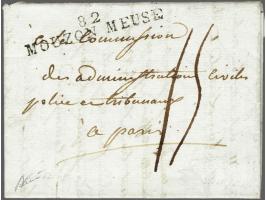 82
MOUZON MEUSE
La Commission
des administrations civiles
police et tribunaux
a paris
15